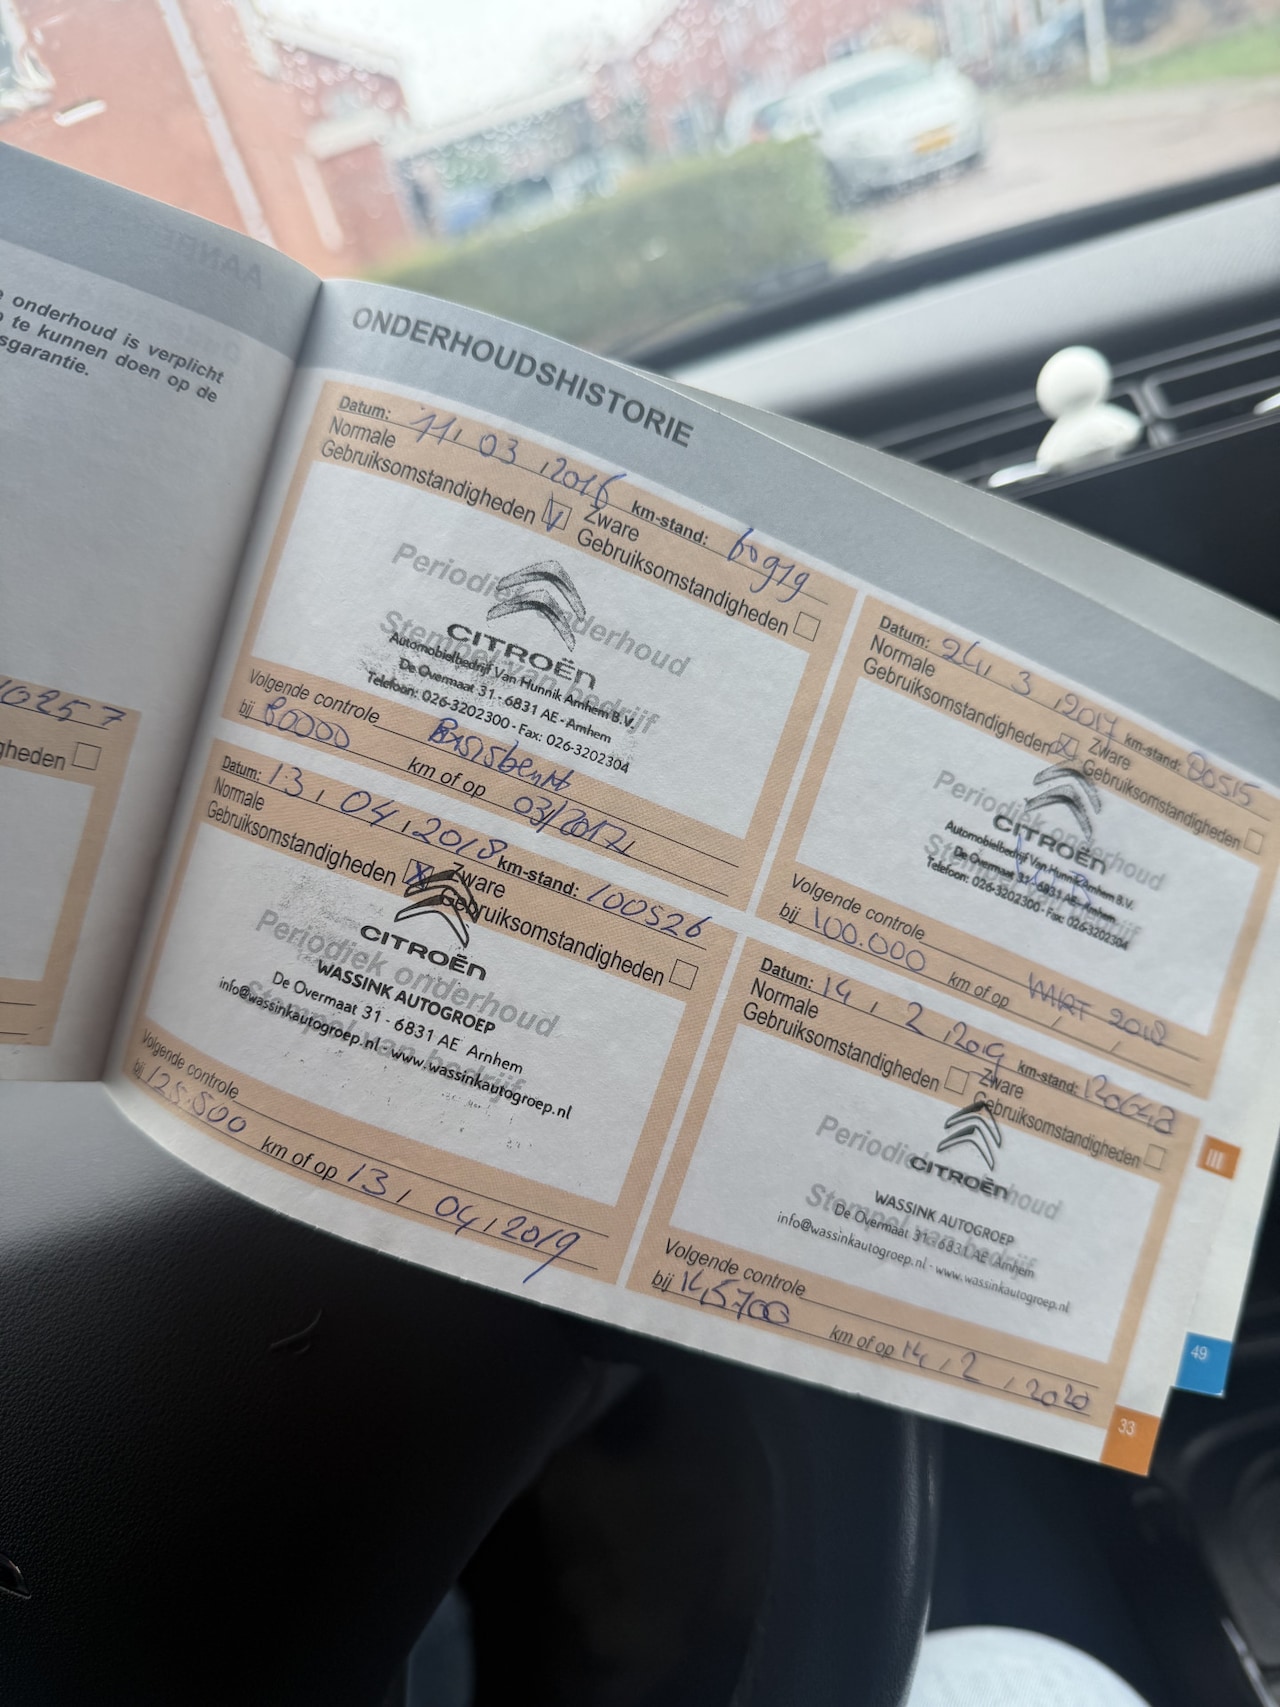 onderhoud is verplicht
te kunnen doen op de
sgarantie.
10257
gheden
ONDERHOUDSHISTORIE
Datum: 11, 03, 2016 km-stand: 60979
Normale Gebruiksomstandigheden V Zware Gebruiksomstandigheden
Periodiek onderhoud
Stempel van bedrijf
CITROËN
Automobielbedrijf Van Hunnik Arnhem B.V.
De Overmaat 31 - 6831 AE - Arnhem
Telefoon: 026-3202300 - Fax: 026-3202304
Volgende controle
bij 80000 km of op 03/2017
Datum: 24, 3, 2017 km-stand: 80515
Normale Gebruiksomstandigheden X Zware Gebruiksomstandigheden
Periodiek onderhoud
Stempel van bedrijf
CITROËN
Automobielbedrijf Van Hunnik Arnhem B.V.
De Overmaat 31 - 6831 AE - Arnhem
Telefoon: 026-3202300 - Fax: 026-3202304
Volgende controle
bij 100.000 km of op MRT 2018
Datum: 13, 04, 2018 km-stand: 100526
Normale Gebruiksomstandigheden X Zware Gebruiksomstandigheden
Periodiek onderhoud
Stempel van bedrijf
CITROËN
WASSINK AUTOGROEP
De Overmaat 31 - 6831 AE Arnhem
info@wassinkautogroep.nl - www.wassinkautogroep.nl
Volgende controle
bij 125.500 km of op 13, 04, 2019
Datum: 14, 2, 2019 km-stand: 120648
Normale Gebruiksomstandigheden Zware Gebruiksomstandigheden
Periodiek onderhoud
Stempel van bedrijf
CITROËN
WASSINK AUTOGROEP
De Overmaat 31 - 6831 AE Arnhem
info@wassinkautogroep.nl - www.wassinkautogroep.nl
Volgende controle
bij 145700 km of op 14, 2, 2020
III
49
33